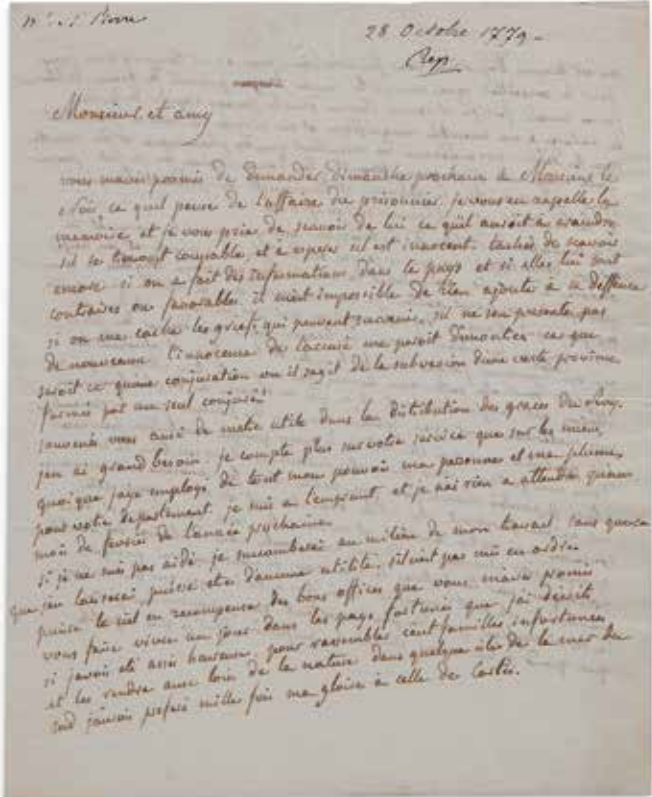 Mr. de St Pierre
28 Octobre 1779.
Rep
Monsieur et amy
vous m'avés promis de demander dimanche prochain à Monsieur le
Noir ce qu'il pense de l'affaire du prisonnier. je vous en rappelle la
memoire et je vous prie de scavoir de lui ce qu'il auroit a craindre
s'il se trouvoit coupable et a esperer s'il est innocent. tachés de scavoir
encore si on a fait des informations dans le pays et si elles lui sont
contraires ou favorables il m'est impossible de rien ajouter à sa deffence
si on me cache les griefs qui peuvent survenir, s'il ne s'en presente pas
de nouveaux l'innocence de l'accusé me paroit demontrée car que
seroit ce qu'une conjuration ou il s'agit de la subversion d'une vaste province
formée par un seul conjuré?
souvenés vous aussi de m'etre utile dans la distribution des graces du Roy.
j'en ai grand besoin. je compte plus sur votre service que sur les miens,
quoique j'aye employé de tout mon pouvoir ma personne et ma plume
pour votre departement. je suis a l'emprunt, et je n'ai rien a attendre qu'au
mois de fevrier de l'année prochaine.
si je ne suis pas aidé je succomberai au milieu de mon travail sans
que j'en laisserai utilité s'il n'est pas mis en ordre.
puisse le ciel en recompense des bons offices que vous m'avés promis
vous faire vivre un jour dans les pays fortunés que j'ai decrits.
si j'avois eté assés heureux pour rassembler cent familles infortunées
et les rendre aux loix de la nature dans quelque isle de la mer du
sud j'aurois preferé milles fois ma gloire à celle des Cortès.